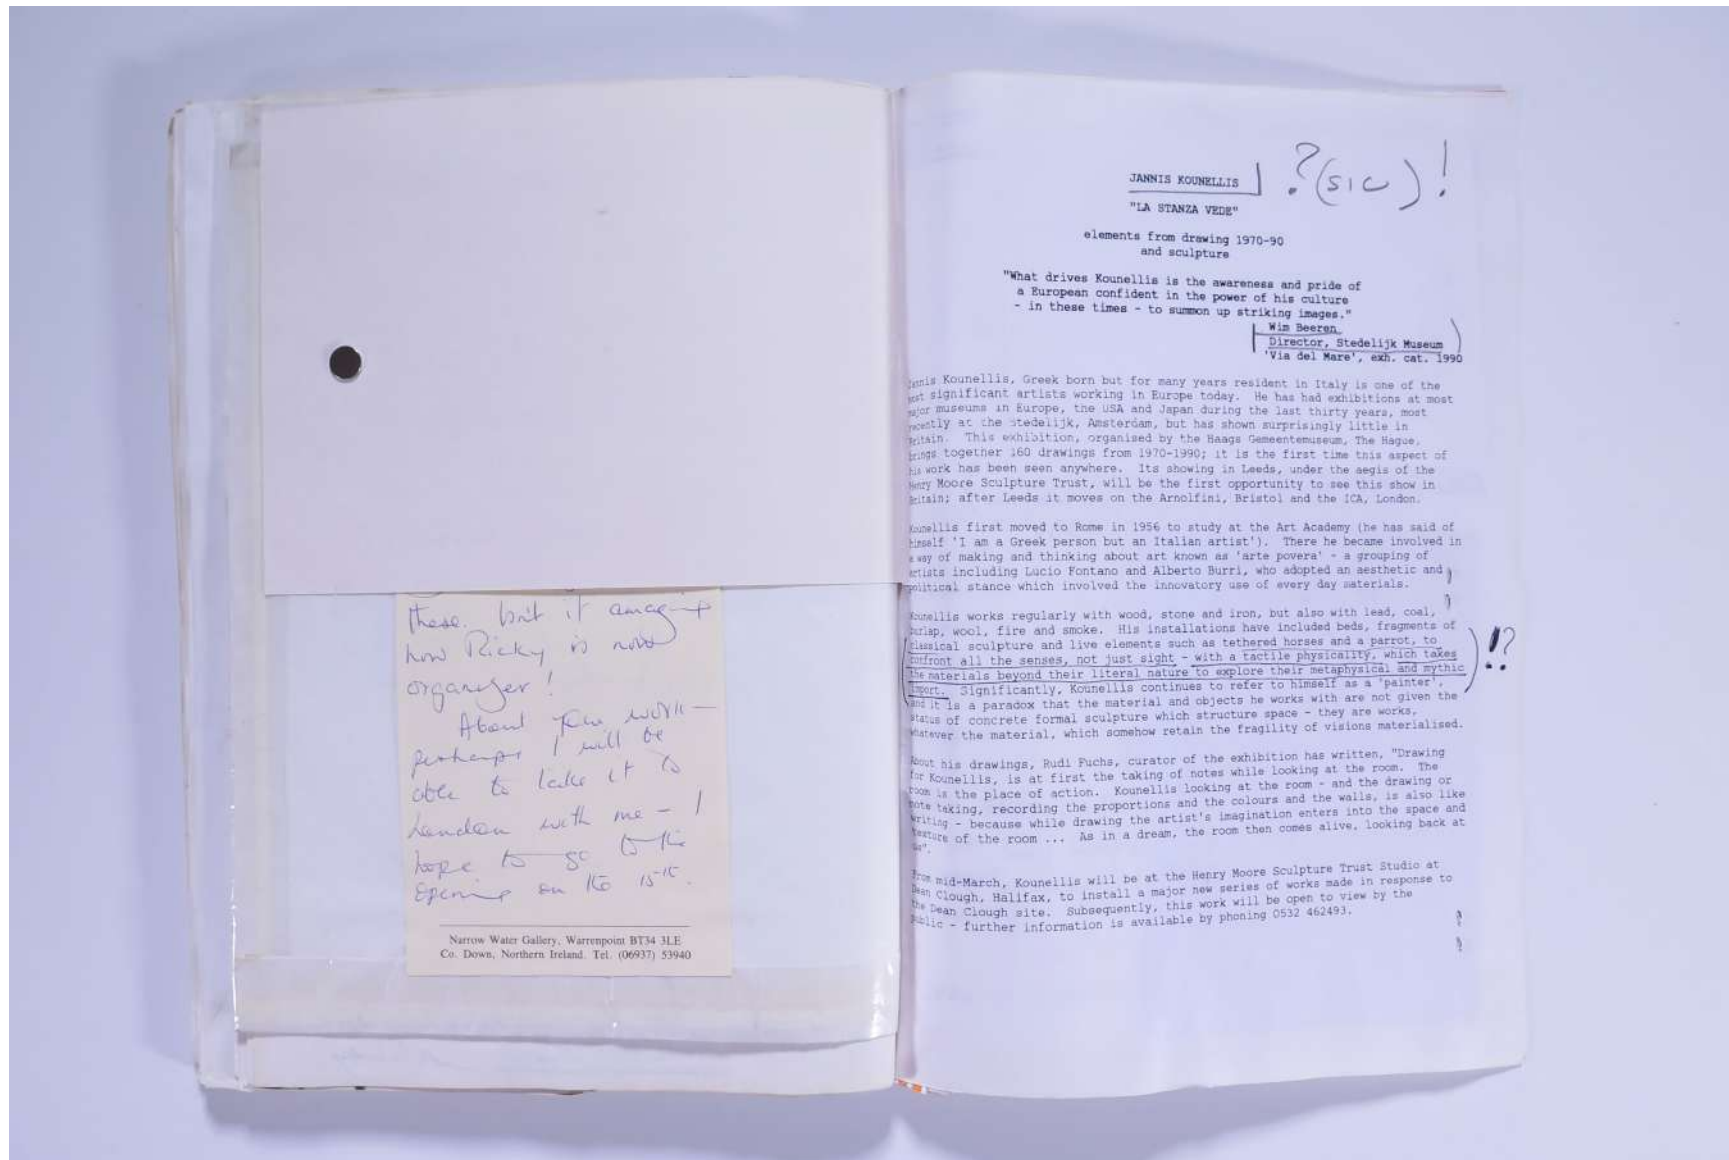 these. Isn't it amazing
how Ricky is now
organizer!
About your work —
perhaps I will be
able to take it to
London with me — I
hope to go to the
opening on the 15th.
Narrow Water Gallery, Warrenpoint BT34 3LE
Co. Down, Northern Ireland. Tel. (06937) 53940
JANNIS KOUNELLIS ? (SIC) !
"LA STANZA VEDE"
elements from drawing 1970-90
and sculpture
"What drives Kounellis is the awareness and pride of
a European confident in the power of his culture
- in these times - to summon up striking images."
Wim Beeren
Director, Stedelijk Museum
'Via del Mare', exh. cat. 1990
Jannis Kounellis, Greek born but for many years resident in Italy is one of the
most significant artists working in Europe today. He has had exhibitions at most
major museums in Europe, the USA and Japan during the last thirty years, most
recently at the Stedelijk, Amsterdam, but has shown surprisingly little in
Britain. This exhibition, organised by the Haags Gemeentemuseum, The Hague,
brings together 160 drawings from 1970-1990; it is the first time this aspect of
his work has been seen anywhere. Its showing in Leeds, under the aegis of the
Henry Moore Sculpture Trust, will be the first opportunity to see this show in
Britain; after Leeds it moves on the Arnolfini, Bristol and the ICA, London.
Kounellis first moved to Rome in 1956 to study at the Art Academy (he has said of
himself 'I am a Greek person but an Italian artist'). There he became involved in
a way of making and thinking about art known as 'arte povera' - a grouping of
artists including Lucio Fontano and Alberto Burri, who adopted an aesthetic and
political stance which involved the innovatory use of every day materials.
Kounellis works regularly with wood, stone and iron, but also with lead, coal,
burlap, wool, fire and smoke. His installations have included beds, fragments of
classical sculpture and live elements such as tethered horses and a parrot, to
confront all the senses, not just sight - with a tactile physicality, which takes !?
the materials beyond their literal nature to explore their metaphysical and mythic
import. Significantly, Kounellis continues to refer to himself as a 'painter',
and it is a paradox that the material and objects he works with are not given the
status of concrete formal sculpture which structure space - they are works,
whatever the material, which somehow retain the fragility of visions materialised.
About his drawings, Rudi Fuchs, curator of the exhibition has written, "Drawing
for Kounellis, is at first the taking of notes while looking at the room. The
room is the place of action. Kounellis looking at the room - and the drawing or
note taking, recording the proportions and the colours and the walls, is also like
writing - because while drawing the artist's imagination enters into the space and
texture of the room ... As in a dream, the room then comes alive, looking back at
us".
From mid-March, Kounellis will be at the Henry Moore Sculpture Trust Studio at
Dean Clough, Halifax, to install a major new series of works made in response to
the Dean Clough site. Subsequently, this work will be open to view by the
public - further information is available by phoning 0532 462493.